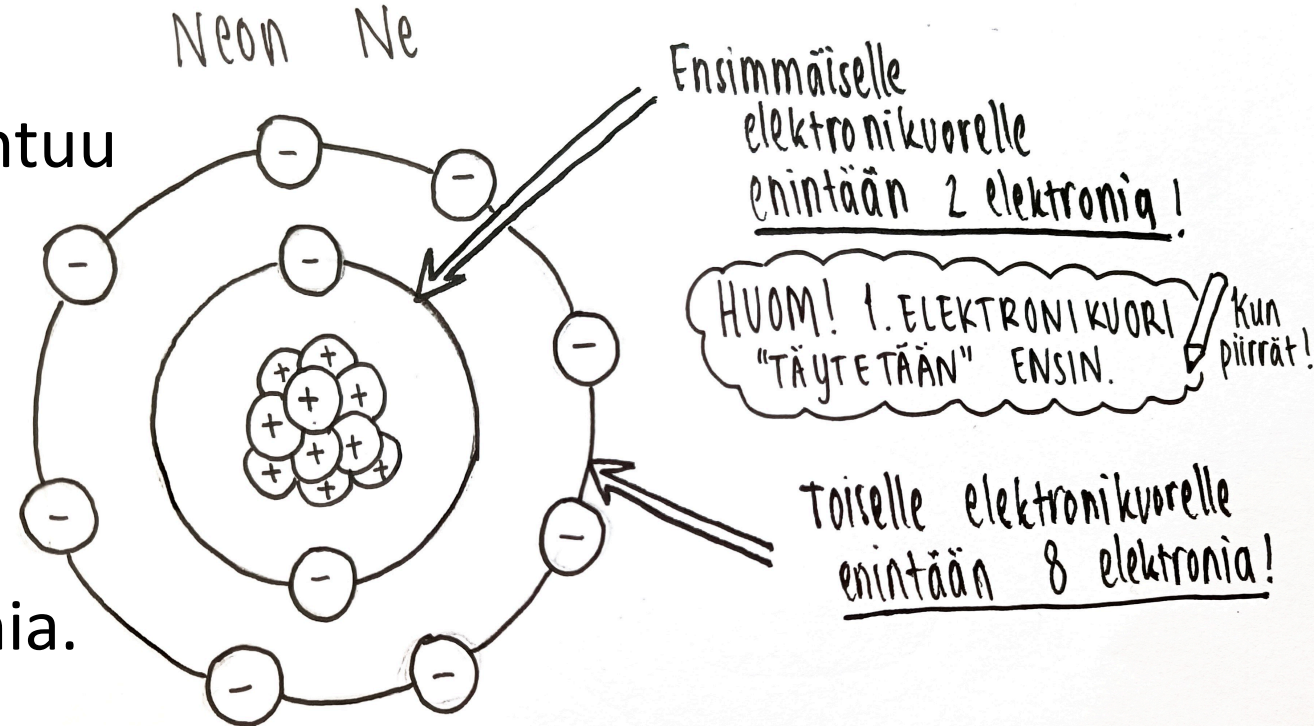 Neon Ne
ntuu
nia.
Ensimmäiselle
elektronikuorelle
enintään 2 elektronia!
HUOM! 1. ELEKTRONIKUORI
"TÄYTETÄÄN" ENSIN.
Kun
piirrät!
Toiselle elektronikuorelle
enintään 8 elektronia!